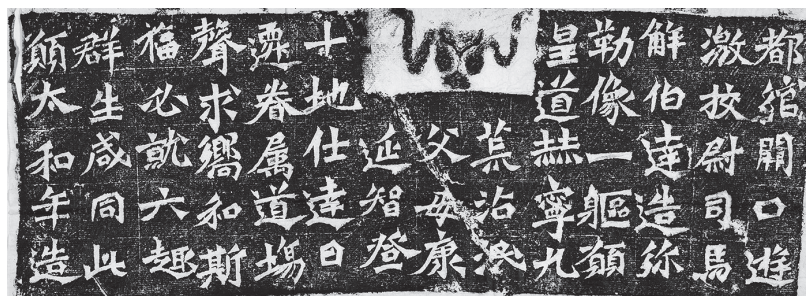 都綰闕口遊
激挍尉司馬
解伯達造弥
勒像一軀願
皇道赫寧九
荒沾澤
父母康
延智登
十地仕達日
遷眷属道場
聲求嚮和斯
福必就六趣
群生咸同此
願太和年造